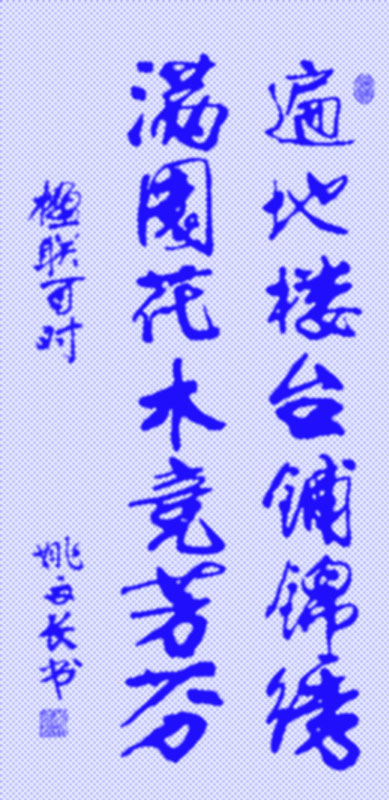 遍地楼台铺锦绣
满园花木竞芳芬
楹联可对
姚文长书